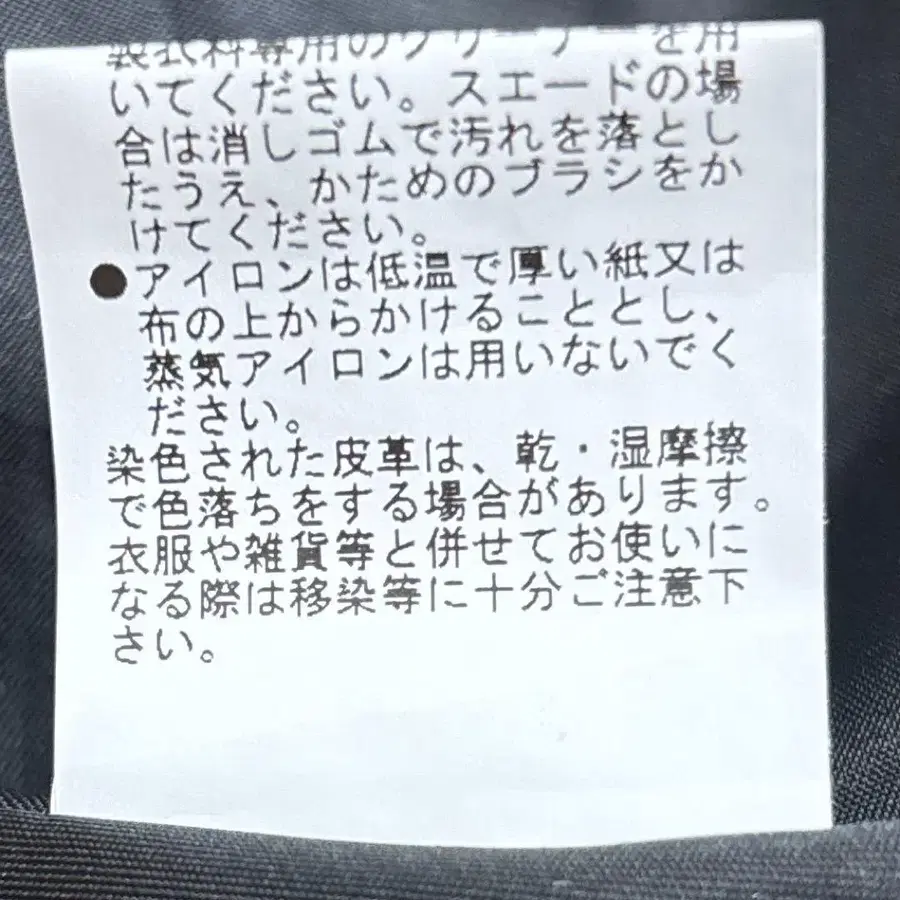 製衣料専用のクリーナーを用
いてください。スエードの場
合は消しゴムで汚れを落とし
たうえ、かためのブラシをか
けてください。
●アイロンは低温で厚い紙又は
布の上からかけることとし、
蒸気アイロンは用いないでく
ださい。
染色された皮革は、乾・湿摩擦
で色落ちをする場合があります。
衣服や雑貨等と併せてお使いに
なる際は移染等に十分ご注意下
さい。